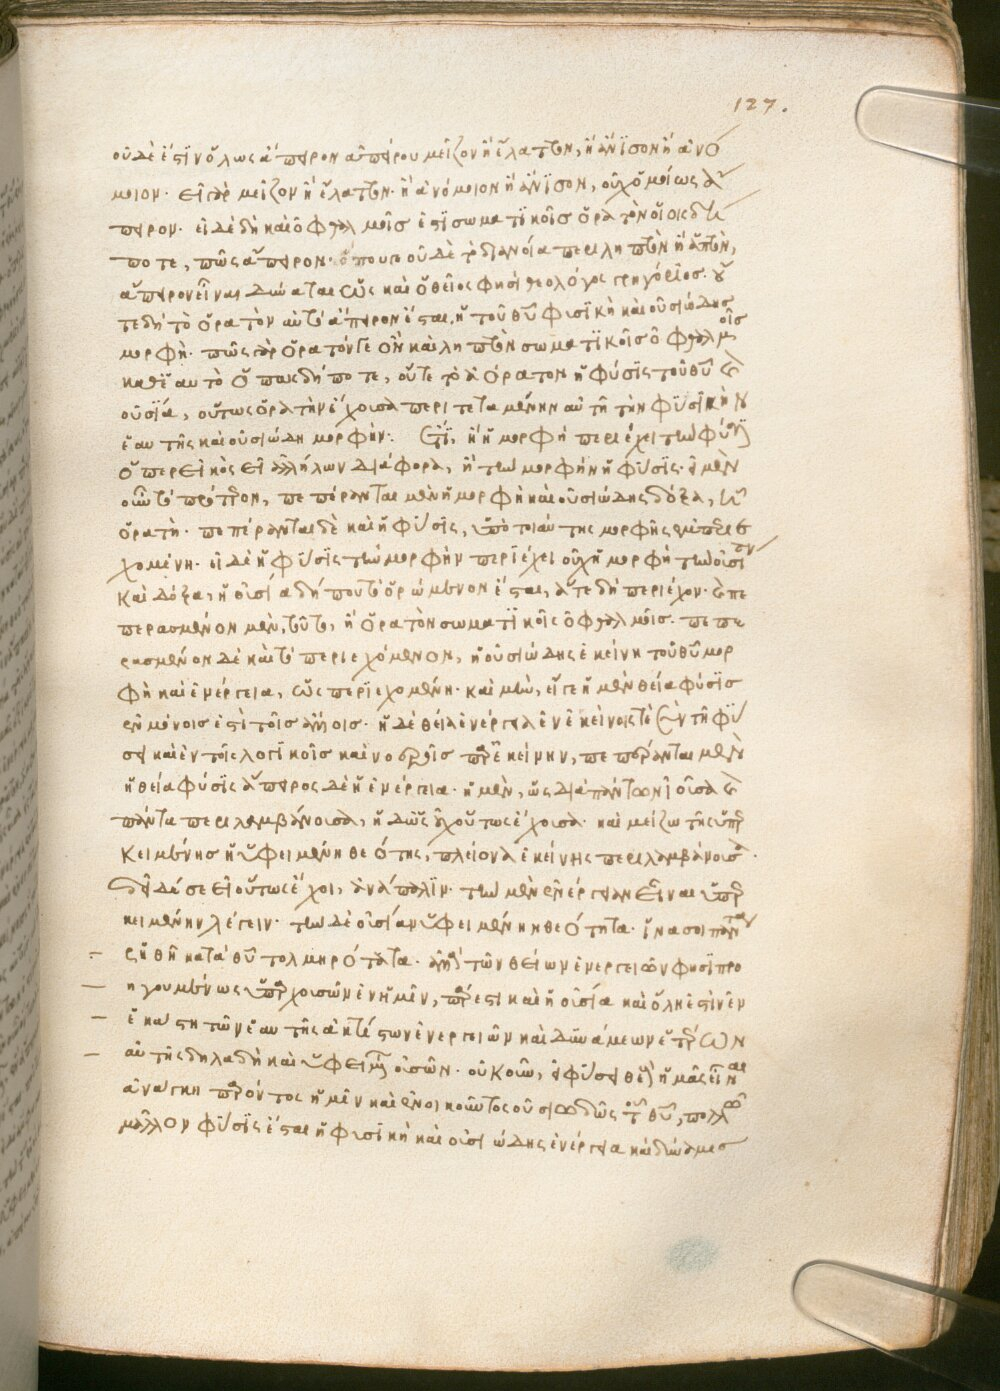 127.
οὐδὲ ἔστιν ὅλως ἄπειρον ἀπείρου μεῖζον ἢ ἔλαττον, ἢ ἄνισον ἢ ἀνό
μοιον· εἰ γὰρ μεῖζον ἢ ἔλαττον· ἢ ἀνόμοιον ἢ ἄνισον, οὐχ ὁμοίως ἄ
πειρον· εἰ δὲ δὴ καὶ ὀφθαλμοῖς ἐστι σωματικοῖς ὁρατὸν οἱονδή
ποτε, πῶς ἄπειρον· ὅπου οὐδὲ τὸ διανοία περιληπτὸν ἢ ἁπτὸν,
ἄπειρον εἶναι δύναται ὡς καὶ ὁ θεῖος φησὶ θεολόγος γρηγόριος·
τε δὴ τὸ ὁρατὸν αὐτὸ ἄπειρον ἔσται, ἡ τοῦ θεοῦ φυσικὴ καὶ οὐσιώδης
μορφή· πῶς γὰρ ὁρατόν τε ὂν καὶ ληπτὸν σωματικοῖς ὀφθαλμοῖς
καθ' ἑαυτὸ ὁπωσδήποτε, οὔτε τὸ ἀόρατον ἡ φύσις τοῦ θεοῦ καὶ
οὐσία, οὕτως ὁρατὴν ἔχουσα περιτεταμένην αὐτῇ τὴν φυσικὴν
ἑαυτῆς καὶ οὐσιώδη μορφήν· ἔτι, ἢ ἡ μορφὴ περιέχει τὴν φύσιν
ὅπερ εἰκὸς εἰ ἀλλήλων διάφορα, ἢ τὴν μορφὴν ἡ φύσις· εἰ μὲν
οὖν τὸ πρότερον, πεπέρανται μὲν ἡ μορφὴ καὶ οὐσιώδης δόξα, ὡς
ὁρατή· πεπέρανται δὲ καὶ ἡ φύσις, ὑπὸ τοιαύτης μορφῆς ἐμπεριε
χομένη· εἰ δὲ ἡ φύσις τὴν μορφὴν περιέχει οὐχ ἡ μορφὴ τὴν οὐσίαν
καὶ δόξα, ἡ οὐσία δήπου τὸ ὁρώμενον ἔσται, ἅτε δὴ περιέχον· καὶ πε
περασμένον μὲν, τοῦτο, ἢ ὁρατὸν σωματικοῖς ὀφθαλμοῖς· πεπε
ρασμένον δὲ καὶ τὸ περιεχόμενον, ἡ οὐσιώδης ἐκείνη τοῦ θεοῦ μορ
φὴ καὶ ἐνέργεια, ὡς περιεχομένη· καὶ μὴν, εἴγε ἡ μὲν θεία φύσις
ἐν μόνοις ἐστὶ τοῖς ἁγίοις· ἡ δὲ θεία ἐνέργεια ἐν ἐκείνοις τε σὺν τῇ φύ
σει καὶ ἐν τοῖς λογικοῖς καὶ νοεροῖς παρ' ἐκείνην, πεπέρανται μὲν
ἡ θεία φύσις ἄπειρος δὲ ἡ ἐνέργεια· ἡ μὲν, ὡς διὰ πάντων ἰοῦσα καὶ
πάντα περιλαμβάνουσα, ἡ δ' ὡς οὐχ οὕτως ἔχουσα· καὶ μείζω τῆς ὑπερ
κειμένης ἡ ὑφειμένη θεότης, πλείονα ἐκείνης περιλαμβάνουσα.
δεῖ δέ σε εἰ οὕτως ἔχοι, ἀνάπαλιν· τὴν μὲν ἐνέργειαν εἶναι ὑπερ
κειμένην λέγειν· τὴν δὲ οὐσίαν ὑφειμένην θεότητα· ἵνα σοι πάντα
ῥηθῇ κατὰ θεοῦ τολμηρότατα· ἀλλὰ τῶν θείων ἐνεργειῶν φησὶ προ
ηγουμένως ὑπαρχουσῶν ἐν ἡμῖν, πάρεστι καὶ ἡ οὐσία καὶ ὅλη ἐστὶν ἐν
ἑκάστη τῶν ἑαυτῆς ἀκτίστων ἐνεργειῶν καὶ δυνάμεων ἑτέρων
αὐτῆς δηλαδὴ καὶ ὑφειμένων οὐσῶν· οὐκοῦν, εἰ φύσει θεοὺς ἡμᾶς εἶναι
ἀνάγκη παρόντος ἡμῖν καὶ ἐνοικοῦντος οὐσιωδῶς τοῦ θεοῦ, πολλῷ
μᾶλλον φύσις ἔσται ἡ φυσικὴ καὶ οὐσιώδης ἐνέργεια καὶ δύναμις